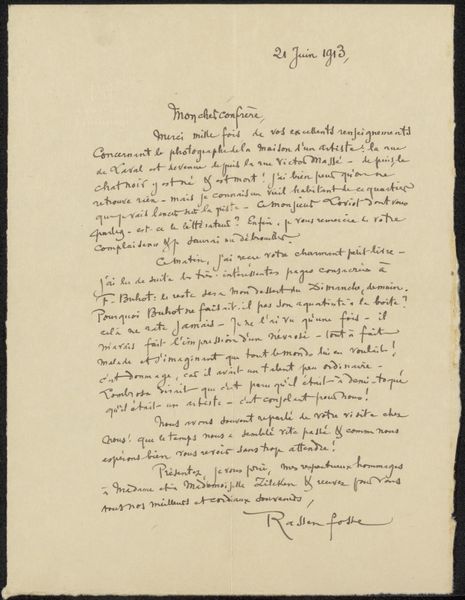 21 Juin 1913,
Mon cher confrère,
Merci mille fois de vos excellents renseignements
concernant le photographe de la maison d'un artiste. la rue
de Laval est devenue depuis la rue Victor Massé - depuis le
chat noir y est né & est mort! j'ai bien peur qu'on ne
retrouve rien - mais je connais un vieil habitant de ce quartier
que je vais lancer sur la piste - ce monsieur Loriot dont vous
parlez - est-ce le littérateur? Enfin, je vous remercie de votre
complaisance & je saurai me débrouiller.
Ce matin, j'ai reçu votre charmant petit livre -
j'ai lu de suite les très intéressantes pages consacrées à
F. Buhot. le reste sera mon dessert du Dimanche, demain.
Pourquoi Buhot ne faisait-il pas son aquatinte à la boîte?
celà ne rate jamais - Je ne l'ai vu qu'une fois - il
m'avais fait l'impression d'un névrosé - tout à fait
malade et s'imaginant que tout le monde lui en voulait!
c'est dommage, car il avait un talent peu ordinaire -
Lombroso dirait que c'est parce qu'il était à demi-toqué
qu'il était un artiste - c'est consolant pour nous!
Nous avons souvent reparlé de votre visite chez
nous! que le temps nous a semblé vite passé & comme nous
espérons bien vous revoir sans trop attendre!
Présentez, je vous prie, mes respectueux hommages
à Madame et à Mademoiselle Zilcken & recevez pour vous
tous nos meilleurs et cordiaux souvenirs,
Rassenfosse